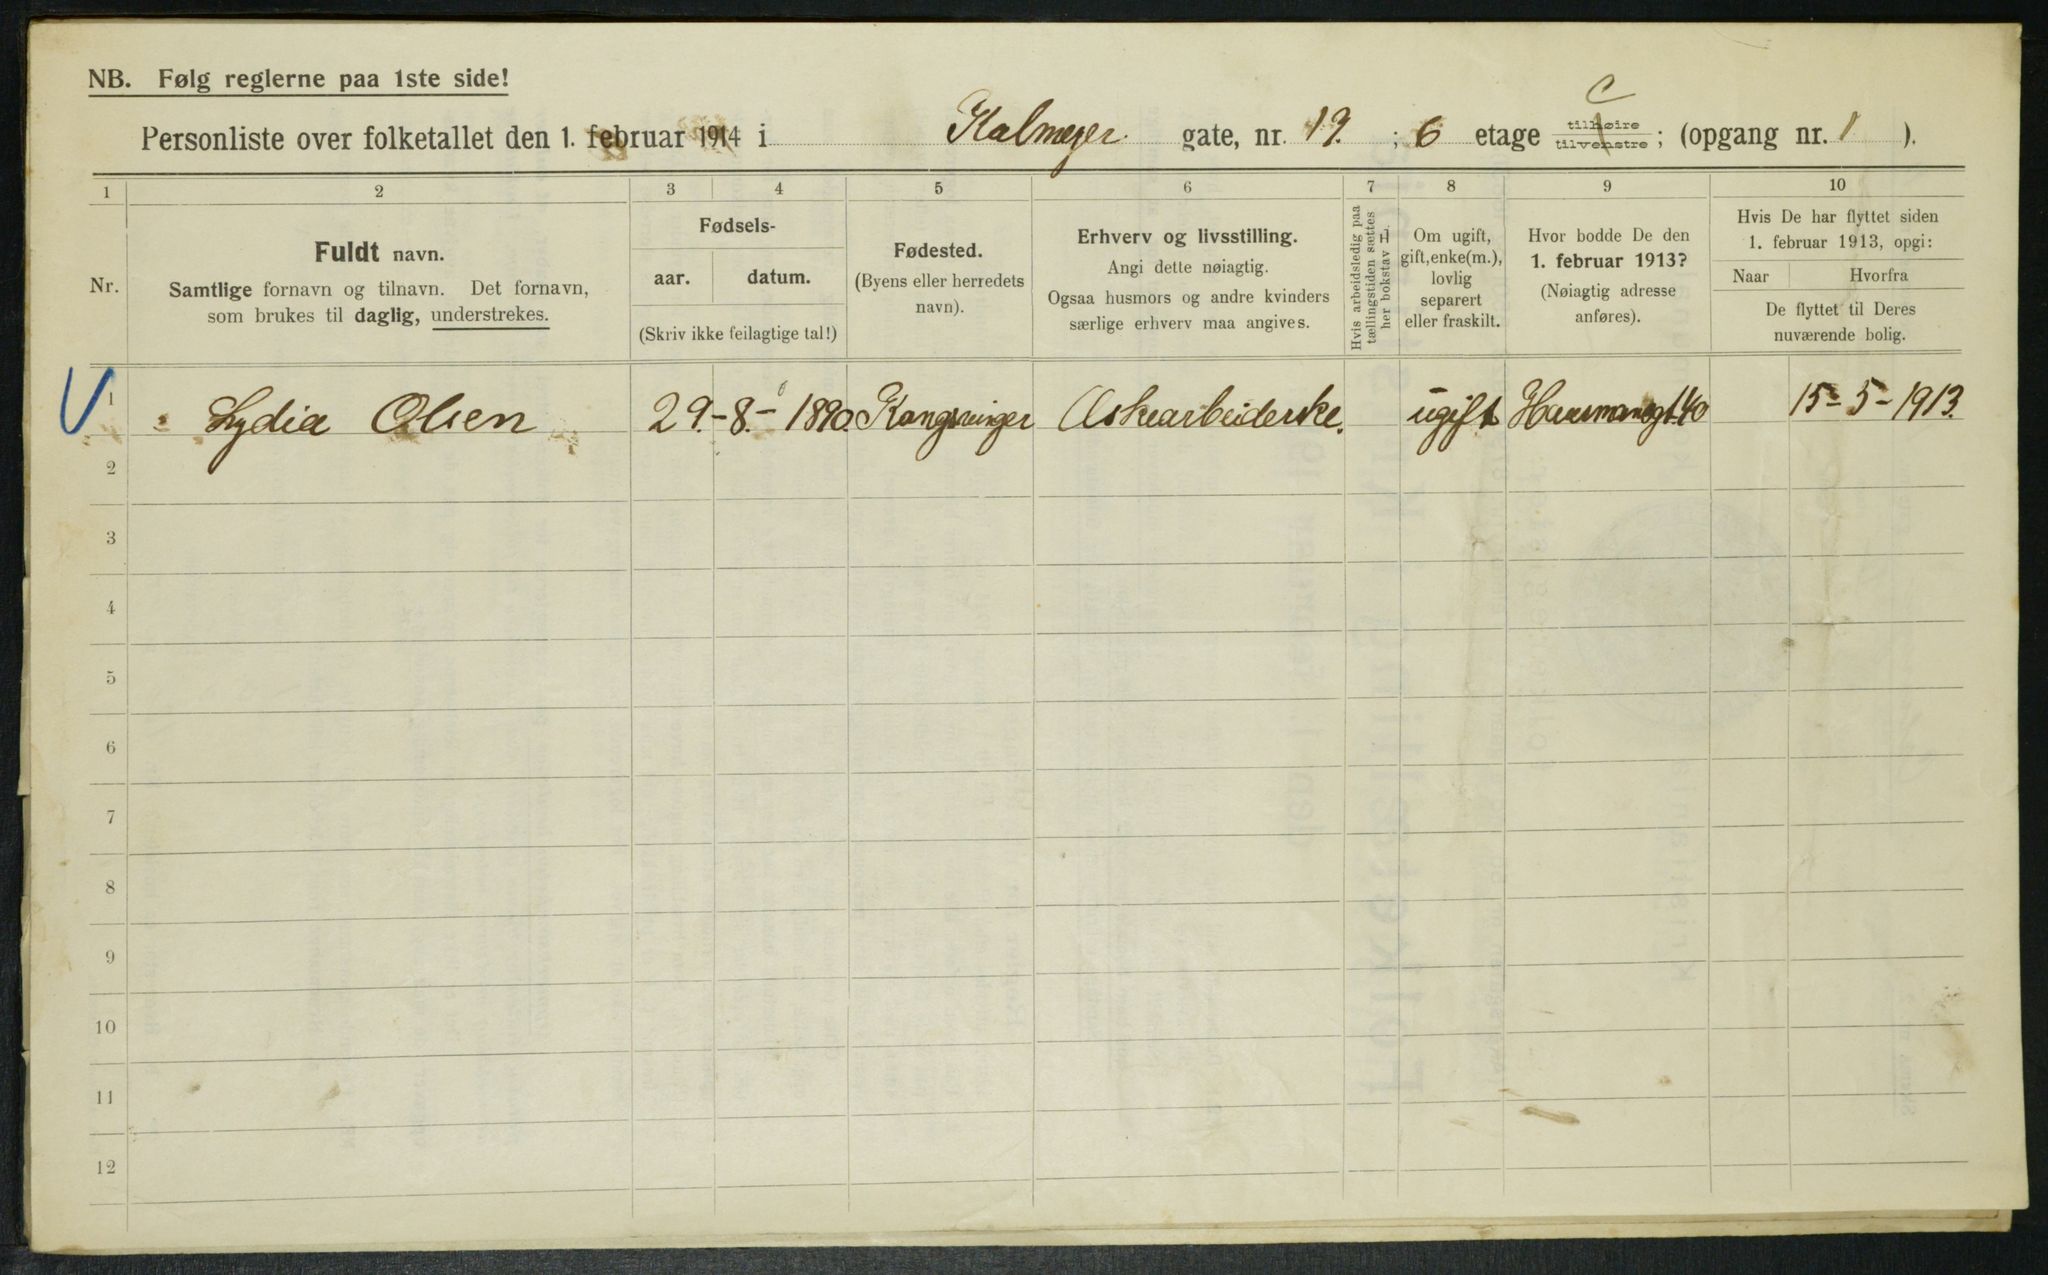 NB. Følg reglerne paa 1ste side!
C
Personliste over folketallet den 1. februar 1914 i Kalmeyer gate, nr. 19. ; 6 etage tilhøire tilvenstre ; (opgang nr. 1 ).
1 2 3 4 5 6 7 8 9 10
Nr.
Fuldt navn.
Samtlige fornavn og tilnavn. Det fornavn,
som brukes til daglig, understrekes.
Fødsels-
aar. datum.
(Skriv ikke feilagtige tal!)
Fødested.
(Byens eller herredets
navn).
Erhverv og livsstilling.
Angi dette nøiagtig.
Ogsaa husmors og andre kvinders
særlige erhverv maa angives.
Hvis arbeidsledig paa
tællingstiden sættes
her bokstav L
Om ugift,
gift, enke(m.),
lovlig
separert
eller fraskilt.
Hvor bodde De den
1. februar 1913?
(Nøiagtig adresse
anføres).
Hvis De har flyttet siden
1. februar 1913, opgi:
Naar Hvorfra
De flyttet til Deres
nuværende bolig.
1 Lydia Olsen 29.-8.-1890. Kongsvinger Æskearbeiderske. ugift Hausmansgt. 40 15-5-1913.
2
3
4
5
6
7
8
9
10
11
12